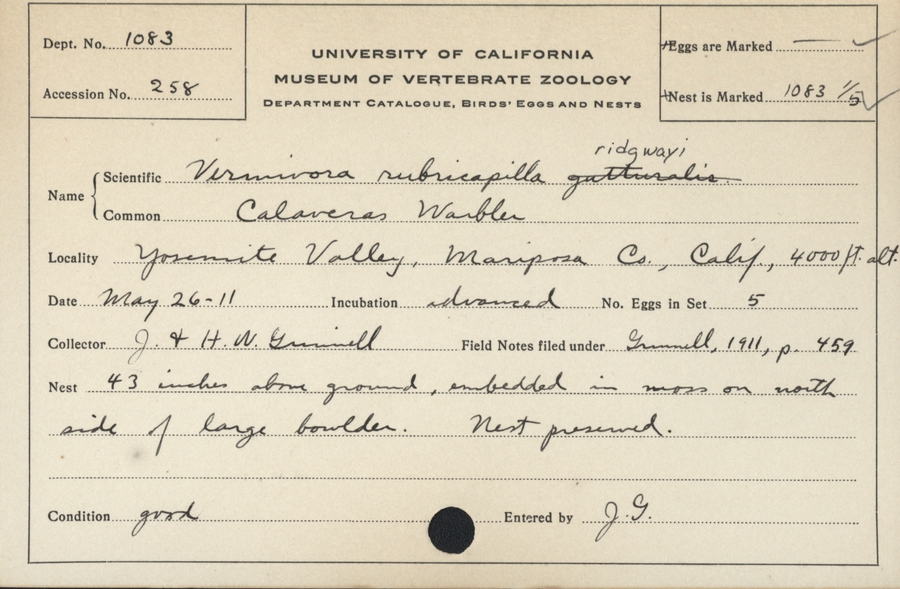 Dept. No. 1083
Accession No. 258
UNIVERSITY OF CALIFORNIA
MUSEUM OF VERTEBRATE ZOOLOGY
DEPARTMENT CATALOGUE, BIRDS' EGGS AND NESTS
Eggs are Marked —
Nest is Marked 1083 1/5
ridgwayi
Name Scientific Vermivora rubricapilla gutturalis
Common Calaveras Warbler
Locality Yosemite Valley, Mariposa Co., Calif., 4000 ft. alt.
Date May 26-11 Incubation advanced No. Eggs in Set 5
Collector J. & H. W. Grinnell Field Notes filed under Grinnell, 1911, p. 459
Nest 43 inches above ground, embedded in moss on north
side of large bowlder. Nest preserved.
Condition good Entered by J.G.